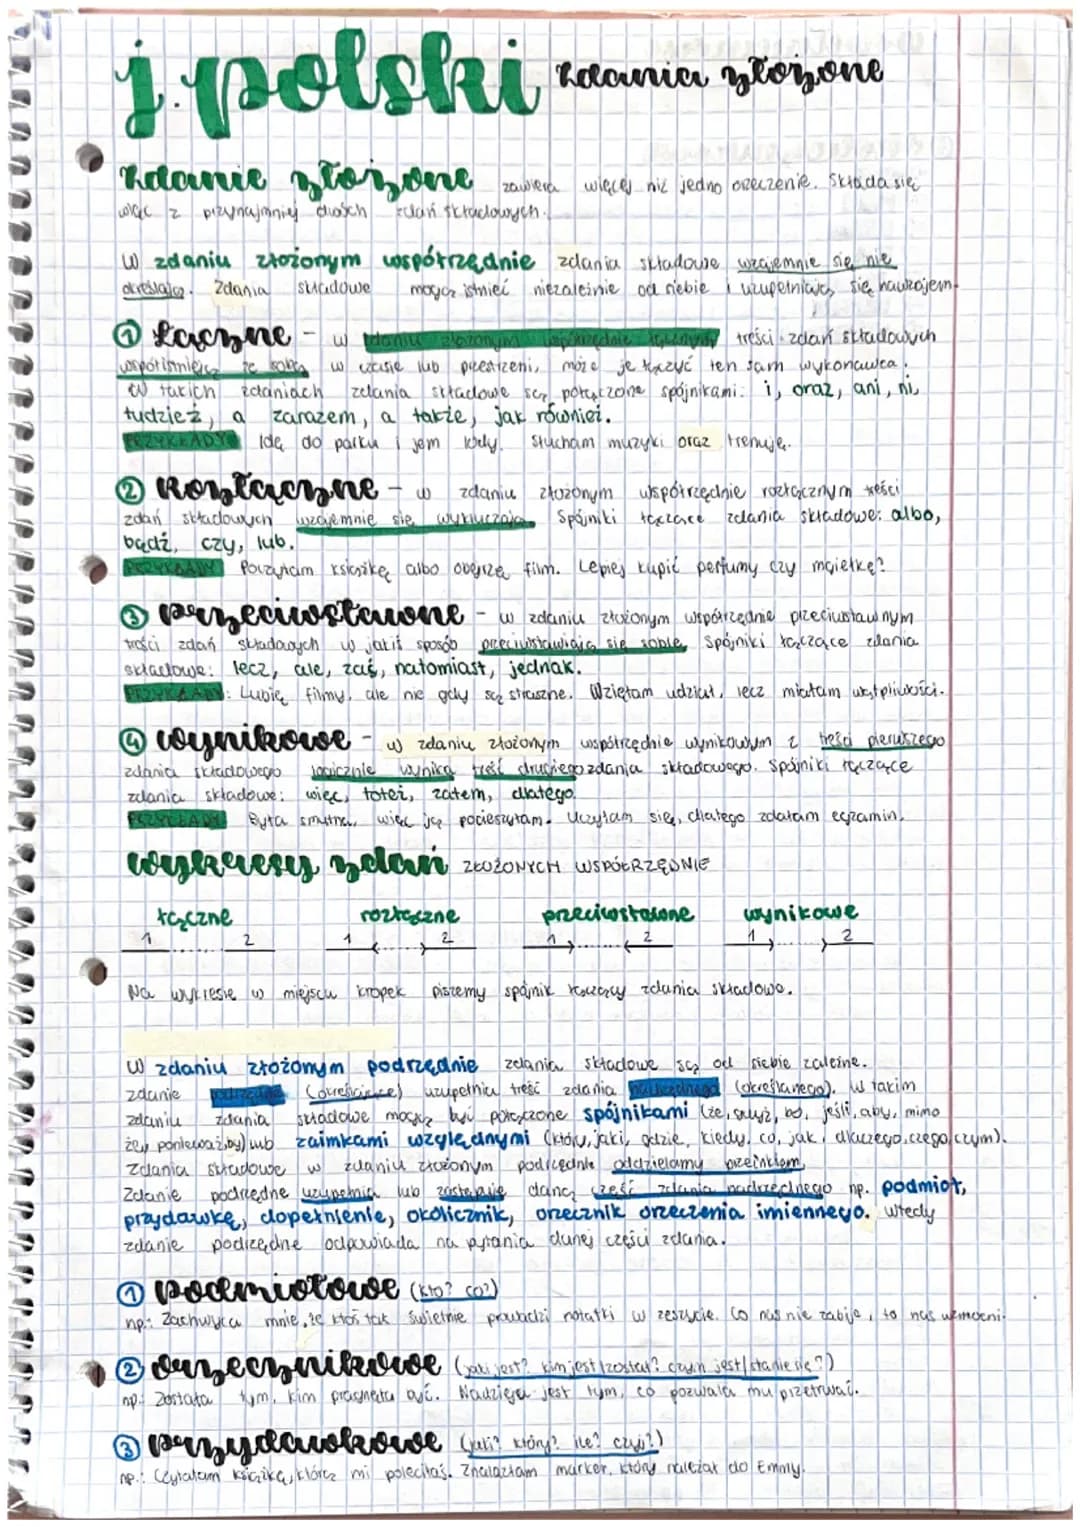 j. polski zdania złożone
zdanie złożone zawiera więcej niż jedno orzeczenie. Składa się
więc z przynajmniej dwóch zdań składowych.
W zdaniu złożonym współrzędnie zdania składowe wzajemnie się nie
określają. Zdania składowe mogą istnieć niezależnie od siebie i uzupełniają się nawzajem.
1 Łączne - w zdaniu złożonym współrzędnie łącznym treści zdań składowych
współistnieją ze sobą w czasie lub przestrzeni, może je łączyć ten sam wykonawca.
W takich zdaniach zdania składowe są połączone spójnikami: i, oraz, ani, ni,
tudzież, a zarazem, a także, jak również.
PRZYKŁADY Idę do parku i jem lody. Słucham muzyki oraz trenuję.
2 Rozłączne - w zdaniu złożonym współrzędnie rozłącznym treści
zdań składowych wzajemnie się wykluczają. Spójniki łączące zdania składowe: albo,
bądź, czy, lub.
PRZYKŁADY Poczytam książkę albo obejrzę film. Lepiej kupić perfumy czy mgiełkę?
3 przeciwstawne - w zdaniu złożonym współrzędnie przeciwstawnym
treści zdań składowych w jakiś sposób przeciwstawiają się sobie. Spójniki łączące zdania
składowe: lecz, ale, zaś, natomiast, jednak.
PRZYKŁADY: Lubię filmy, ale nie gdy są straszne. Wzięłam udział, lecz miałam wątpliwości.
4 wynikowe - w zdaniu złożonym współrzędnie wynikowym z treści pierwszego
zdania składowego logicznie wynika treść drugiego zdania składowego. Spójniki łączące
zdania składowe: więc, toteż, zatem, dlatego.
PRZYKŁADY Była smutna, więc ją pocieszyłam. Uczyłam się, dlatego zdałam egzamin.
wykresy zdań ZŁOŻONYCH WSPÓŁRZĘDNIE
łączne rozłączne przeciwstawne wynikowe
1 2 1 2 1 2 1 2
Na wykresie w miejscu kropek piszemy spójnik łączący zdania składowe.
W zdaniu złożonym podrzędnie zdania składowe są od siebie zależne.
zdanie podrzędne (określające) uzupełnia treść zdania nadrzędnego (określanego). W takim
zdaniu zdania składowe mogą być połączone spójnikami (że, gdyż, bo, jeśli, aby, mimo
że, ponieważ, by) lub zaimkami względnymi (który, jaki, gdzie, kiedy, co, jak, dlaczego, czego, czym).
Zdania składowe w zdaniu złożonym podrzędnie oddzielamy przecinkiem.
Zdanie podrzędne uzupełnia lub zastępuje daną część zdania nadrzędnego np. podmiot,
przydawkę, dopełnienie, okolicznik, orzecznik orzeczenia imiennego. Wtedy
zdanie podrzędne odpowiada na pytania danej części zdania.
1 podmiotowe (kto? co?)
np.: Zachwyca mnie, że ktoś tak świetnie prowadzi notatki w zeszycie. Co nas nie zabije, to nas wzmocni.
2 orzecznikowe (jaki jest? kim jest/został? czym jest/stanie się?)
np.: Została tym, kim pragnęła być. Nadzieja jest tym, co pozwala mu przetrwać.
3 przydawkowe (jaki? który? ile? czyj?)
np.: Czytałam książkę, którą mi poleciłaś. Znalazłam marker, który należał do Emmy.